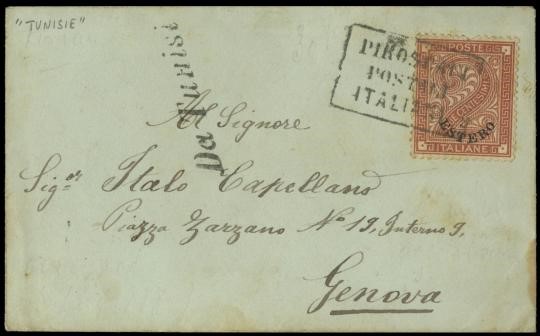 "TUNISIE"
Da Tunisi
PIROSCAFI
POSTALI
ITALIANI
POSTE
ESTERO
ITALIANE
Al Signore
Sig.or Italo Capellano
Piazza Zarzano No 19, Interno 9.
Genova